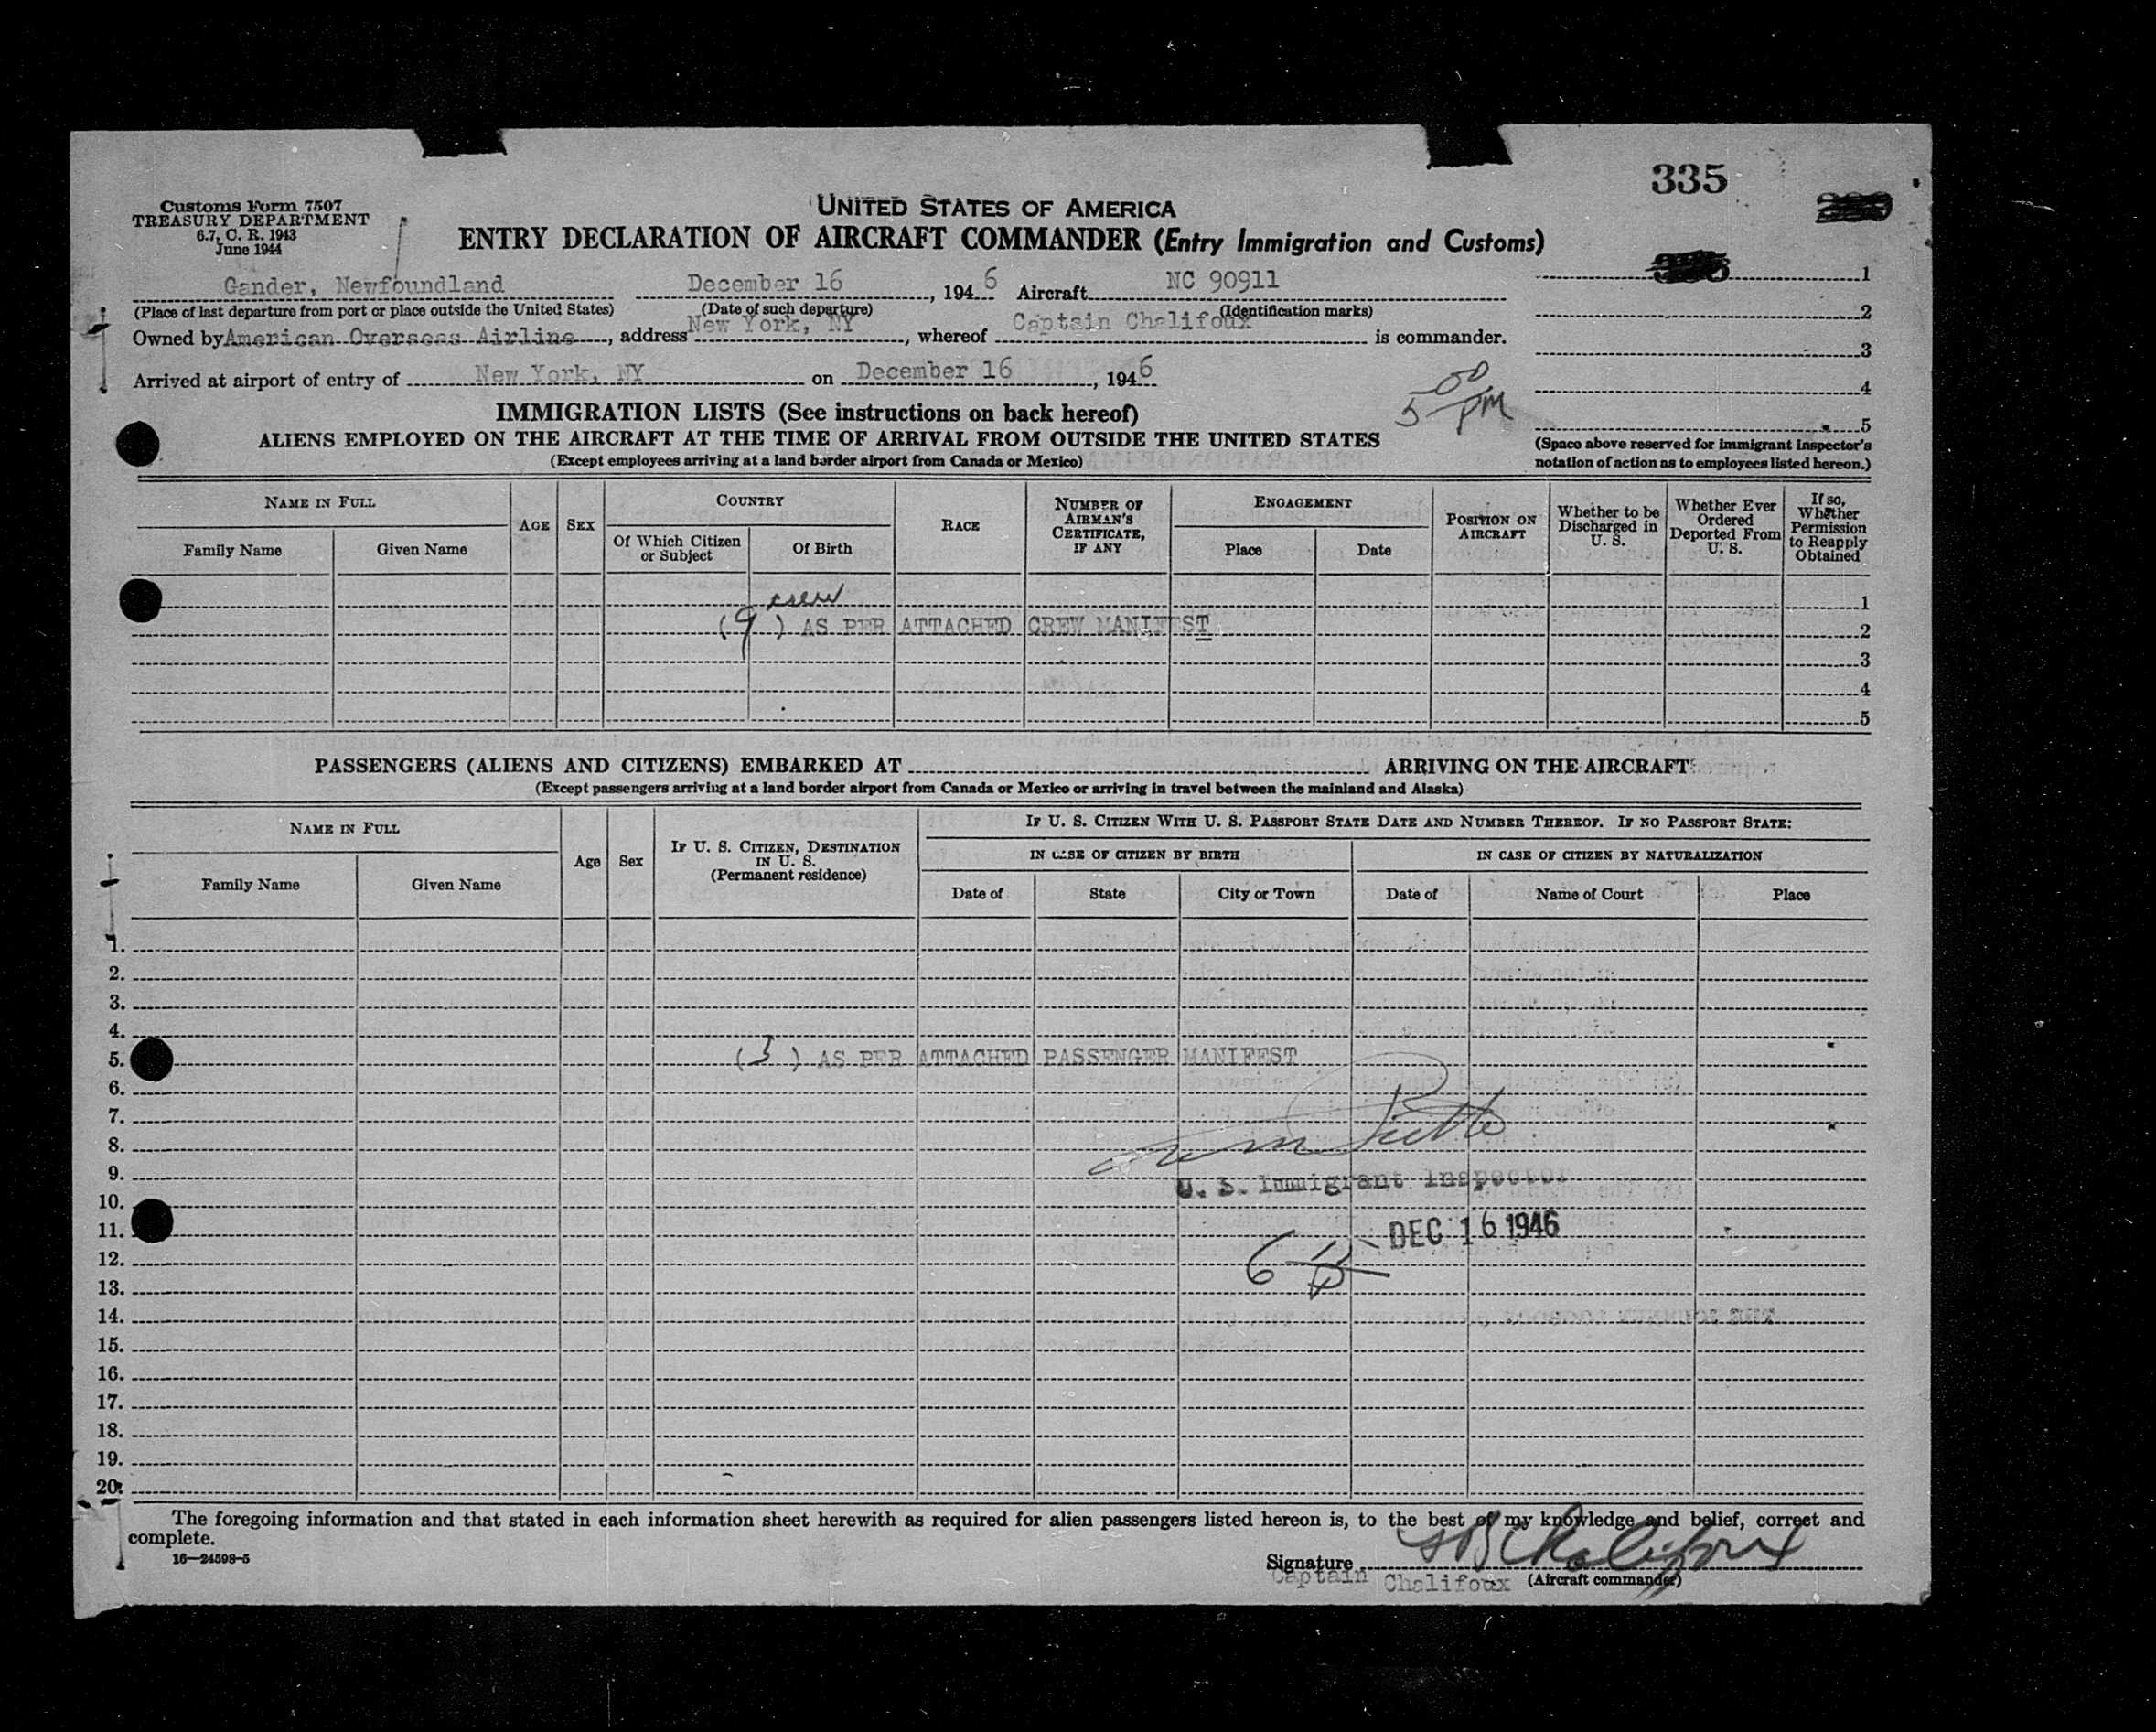 335
Customs Form 7507
TREASURY DEPARTMENT
6.7, C. R. 1943
June 1944
UNITED STATES OF AMERICA
ENTRY DECLARATION OF AIRCRAFT COMMANDER (Entry Immigration and Customs)
Gander, Newfoundland December 16, 1946 Aircraft NC 90911
(Place of last departure from port or place outside the United States) (Date of such departure) (Identification marks)
Owned by American Overseas Airline, address New York, NY, whereof Captain Chalifoux is commander.
Arrived at airport of entry of New York, NY on December 16, 1946
5 00 PM
1
2
3
4
5
(Space above reserved for immigrant inspector's
notation of action as to employees listed hereon.)
IMMIGRATION LISTS (See instructions on back hereof)
ALIENS EMPLOYED ON THE AIRCRAFT AT THE TIME OF ARRIVAL FROM OUTSIDE THE UNITED STATES
(Except employees arriving at a land border airport from Canada or Mexico)
NAME IN FULL
Family Name Given Name
AGE SEX
COUNTRY
Of Which Citizen or Subject
Of Birth
RACE
NUMBER OF AIRMAN'S CERTIFICATE, IF ANY
ENGAGEMENT
Place Date
POSITION ON AIRCRAFT
Whether to be Discharged in U. S.
Whether Ever Ordered Deported From U. S.
If so, Whether Permission to Reapply Obtained
crew
1
(9) AS PER ATTACHED CREW MANIFEST 2
3
4
5
PASSENGERS (ALIENS AND CITIZENS) EMBARKED AT ARRIVING ON THE AIRCRAFT
(Except passengers arriving at a land border airport from Canada or Mexico or arriving in travel between the mainland and Alaska)
NAME IN FULL
Family Name Given Name
Age Sex
IF U. S. CITIZEN, DESTINATION IN U. S.
(Permanent residence)
IF U. S. CITIZEN WITH U. S. PASSPORT STATE DATE AND NUMBER THEREOF. IF NO PASSPORT STATE:
IN CASE OF CITIZEN BY BIRTH IN CASE OF CITIZEN BY NATURALIZATION
Date of State City or Town Date of Name of Court Place
1.
2.
3.
4.
5. ( ) AS PER ATTACHED PASSENGER MANIFEST
6.
7.
8.
9. U. S. Immigrant Inspector
10.
11. DEC 16 1946
12.
13.
14.
15.
16.
17.
18.
19.
20.
The foregoing information and that stated in each information sheet herewith as required for alien passengers listed hereon is, to the best of my knowledge and belief, correct and
complete.
16—24598-5
Signature Chalifoux
Captain Chalifoux (Aircraft commander)